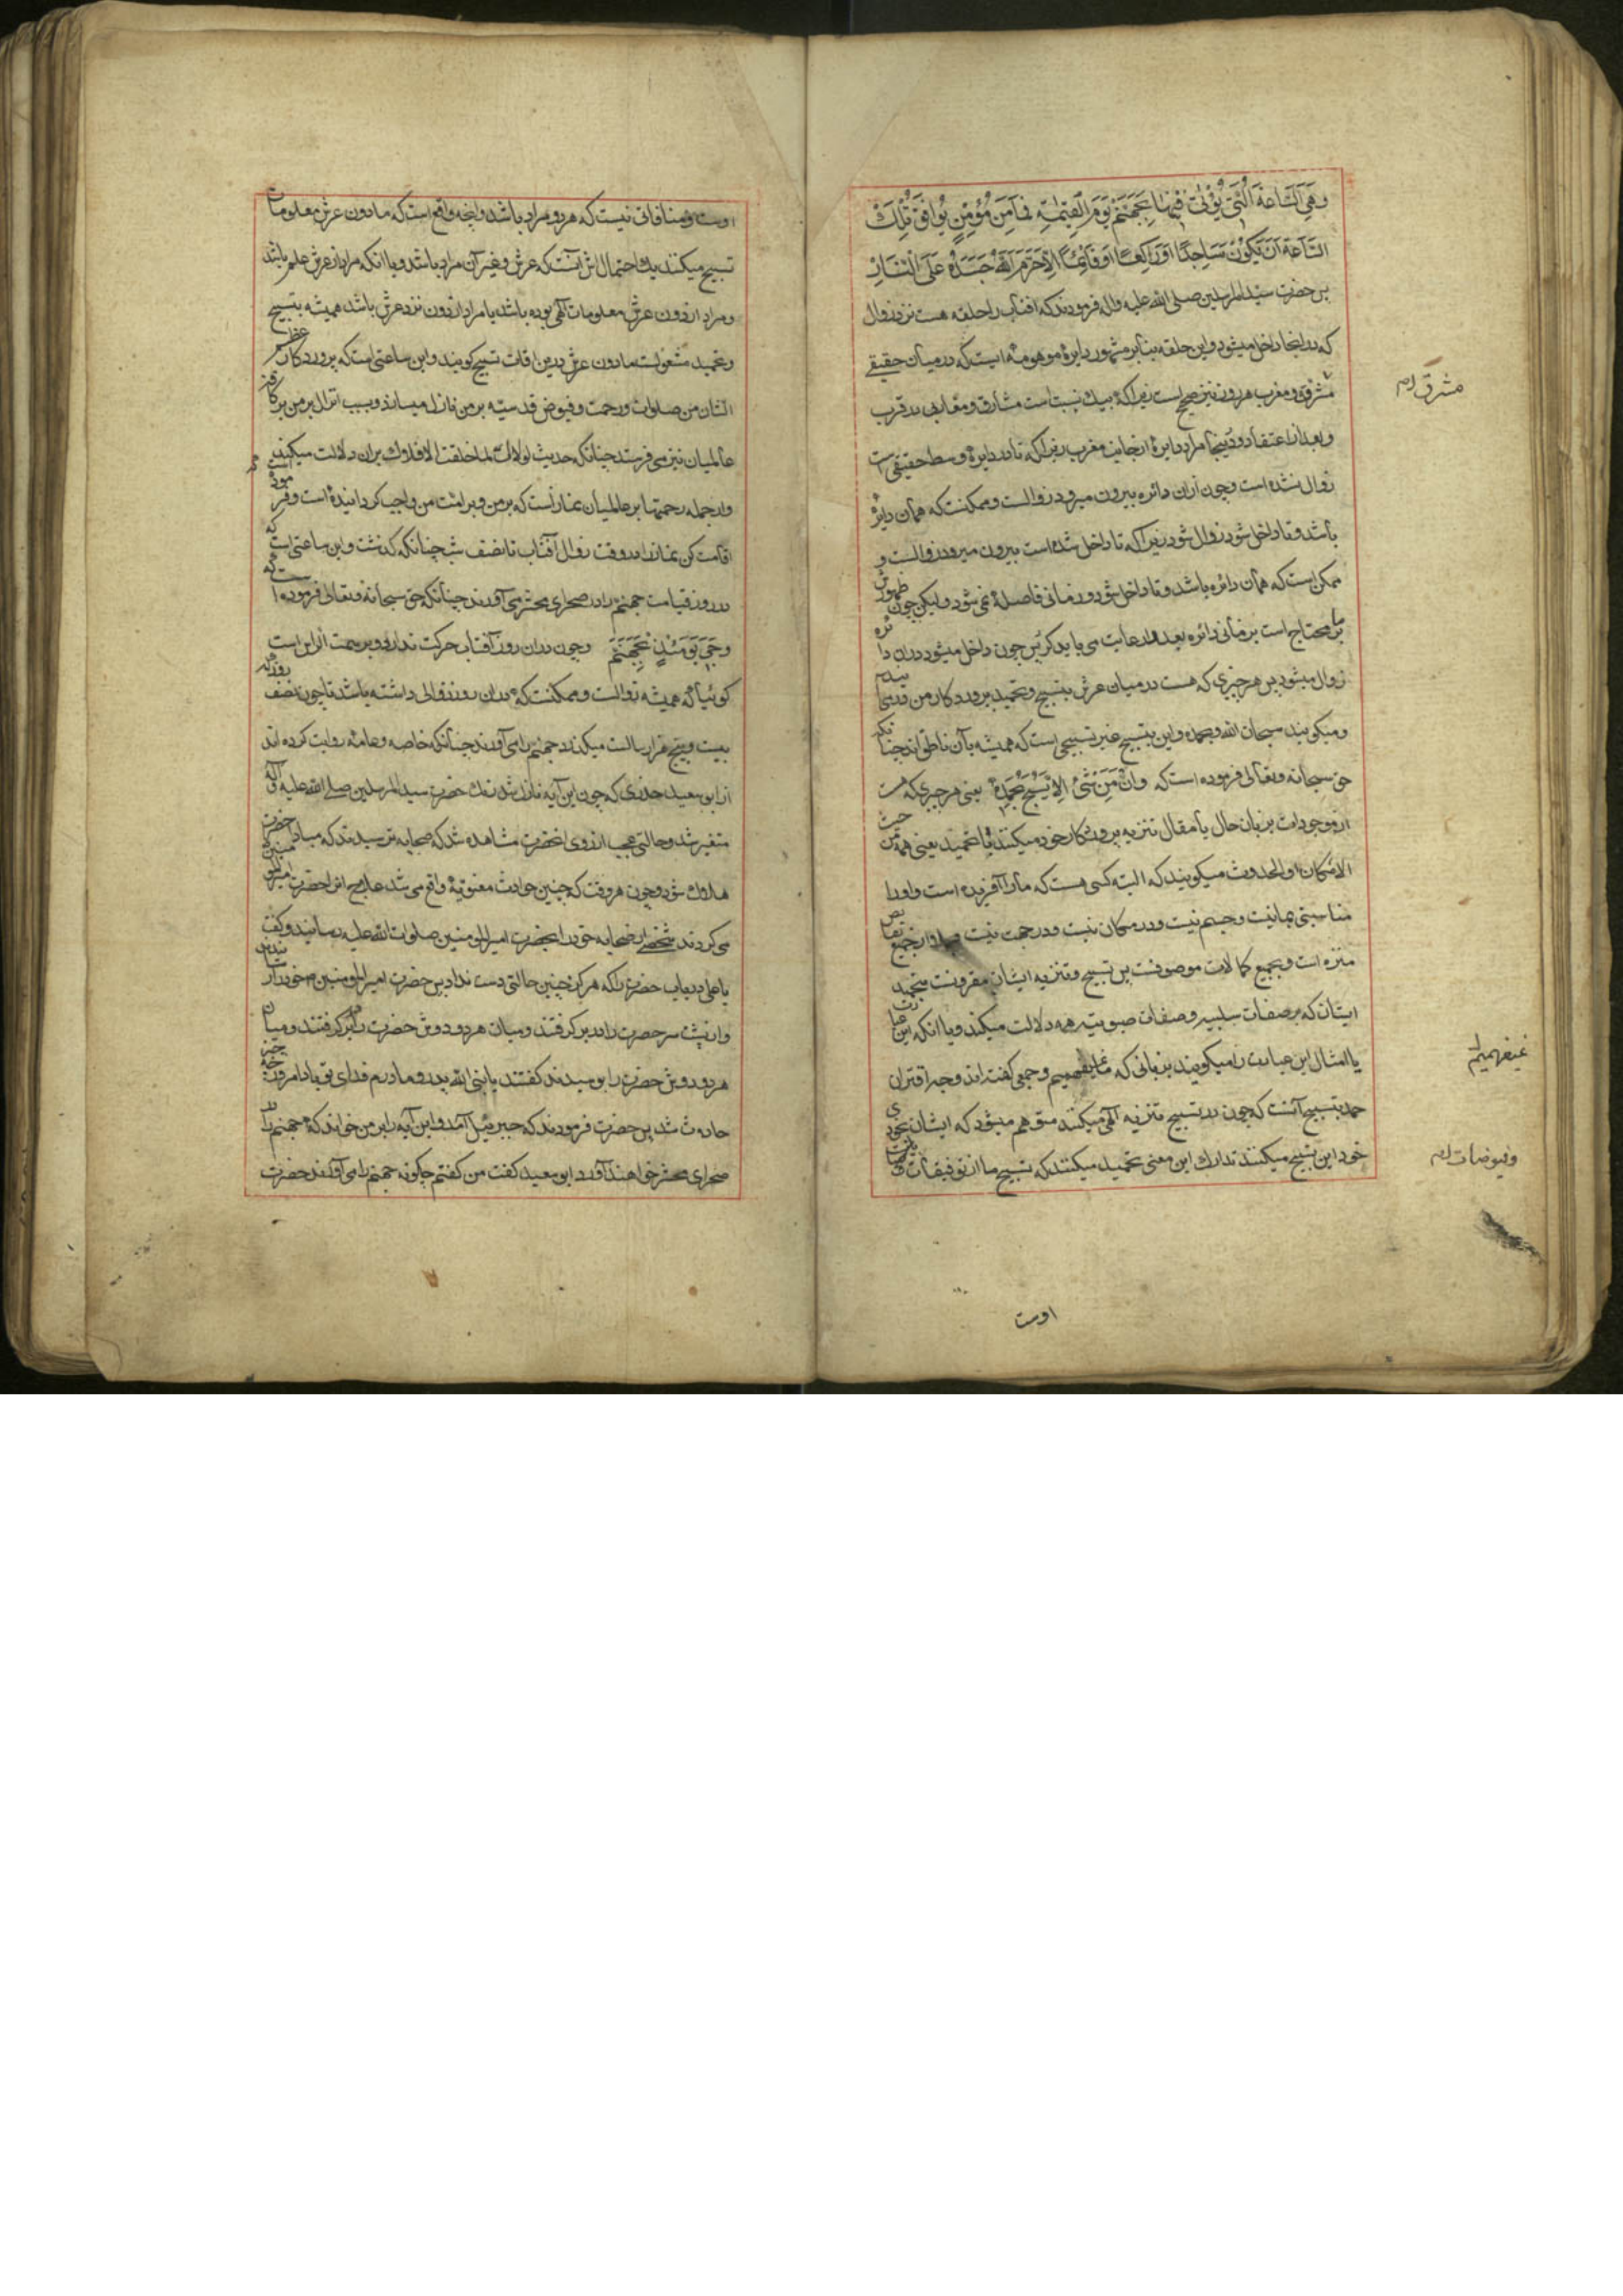 وَهِيَ السَّاعَةُ الَّتِي يُؤْتٰى فِيهَا بِجَهَنَّمَ يَوْمَ الْقِيٰمَةِ فَمَا مِنْ مُؤْمِنٍ يُوَافِقُ تِلْكَ
السَّاعَةَ اَنْ يَكُوْنَ سَاجِدًا اَوْ رَاكِعًا اَوْ قَائِمًا اِلَّا حَرَّمَ اللّٰهُ جَسَدَهُ عَلَى النَّارِ
پس حضرت سید المرسلین صلی الله علیه واله فرمودند که افتاب را حلقه هست نزد زوال
که در انجا داخل میشود و این حلقه بنابر مشهور دایرهٔ موهومه ایست که در میان حقیقی
مشرق و مغرب هر دو نیز صحیح است زیرا که بیک نسبت است مشارق و مغارب در قرب
و بعد از اعتقاد و در اینجا مراد دایرهٔ از جانب مغرب زیرا که تا در دایرهٔ وسط حقیقی است
زوال نشده است و چون ازان دائره بیرون میرود زوالست و ممکنست که همان دایرهٔ
باشد و تا داخل شود زوال شود زیرا که تا داخل شده است بیرون میرود زوالست و
ممکن است که همان دائره باشد و تا داخل شود زمانی فاصله نمی شود ولیکن چون ظهورش
بر ما محتاج است بزمانی دائره بعد را رعایت می باید کرد پس چون داخل میشود در ان دائره
زوال میشود پس هر چیزی که هست در میان عرش بتسبیح و تحمید پرورد کار من
و میکویند سبحان الله وبحمده و این تسبیح غیر تسبیحی است که همیشه بآن ناطق اند چنانکه
حق سبحانه وتعالی فرموده است که وَاِنْ مِنْ شَيْءٍ اِلَّا يُسَبِّحُ بِحَمْدِهٖ یعنی هر چیزی که هست
از موجودات بزبان حال یا مقال تنزیه پروردکار خود میکنند با تحمید یعنی همه من حیث
الامکان او الحدوث میکویند که البته کسی هست که ما را آفریده است و او را
مناسبتی بما نیست و جسم نیست و در مکان نیست و در جهت نیست و از جمیع نقایص
منزه است و بجمیع کمالات موصوفست پس تسبیح و تنزیه ایشان مقرونست بتحمید
ایشان که بر صفات سلبیه و صفات ثبوتیه همه دلالت میکند و یا انکه این عبارت
یا امثال این عبارت را میکویند بزبانی که ما نمی فهمیم و جمعی کفته اند وجه اقتران
حمد بتسبیح آنست که چون در تسبیح تنزیه الهی میکنند متوهم میشود که ایشان بخودی
خود این تسبیح میکنند تدارک این معنی بتحمید میکنند که تسبیح ما از توفیقات
مشرقی ام
نمیفهمیم ام
وفیوضات ام
اوست
اوست و منافاتی نیست که هر دو مراد باشد و انچه واقع است که مادون عرش معلومات
تسبیح میکنند یک احتمال اش آنست که عرش و غیر آن مراد باشد و یا انکه مراد از عرش علم باشد
و مراد از دون عرش معلومات الهی بوده باشد یا مراد از دون نزد عرش باشد همیشه بتسبیح
و تحمید مشغولست مادون عرش درین اوقات تسبیح کویند و این ساعتی است که پروردکار
الشان من صلوات و رحمت و فیوض قدسیه بر من نازل میسازد و بسبب انزال بر من بر کافهٔ
عالمیان نیز می فرستد چنانکه حدیث لولاک لما خلقت الافلاک بران دلالت میکند
و از جمله رحمتها بر عالمیان نماز است که بر من و بر امت من واجب کردانیده است و فرموده
اقامت کن نماز را در وقت زوال آفتاب تا نصف شب چنانکه کذشت و این ساعتی است که
در روز قیامت جهنم را در صحرای محشر می آورند چنانکه حق سبحانه وتعالی فرموده است که
وَجِيْءَ يَوْمَئِذٍ بِجَهَنَّمَ و چون دران روز آفتاب حرکت ندارد و بر سمت الراس است
کوئیا که همیشه زوالست و ممکنست که دران روز زوالی داشته باشد تا چون نصف روز که
بیست و پنج هزار سالست میکذرد جهنم را می آورند چنانکه خاصه و عامه روایت کرده اند
از ابو سعید خدری که چون این آیه نازل شد رنک حضرت سید المرسلین صلی الله علیه وآله
متغیر شد و حالتی عجب از روی انحضرت مشاهده شد که صحابه ترسیدند که مبادا حضرت
هلاک شود و چون هر وقت که چنین حوادث معنویهٔ واقع می شد علاج اش را حضرت امیر المؤمنین
می کردند شخصی از صحابه خود را بحضرت امیر المؤمنین صلوات الله علیه رسانید و کفت
یا علی دریاب حضرت را که هرکز چنین حالتی دست نداد پس حضرت امیر المؤمنین خود را رسانیدند
و از پشت سر حضرت را در بر کرفتند و میان هر دو دوش حضرت را بر کرفتند و میان
هر دو دوش حضرت را بوسیدند کفتند یا نبی الله پدر و مادرم فدای تو باد امروز چه چیز
حادث شد پس حضرت فرمودند که جبرئیل آمد و این آیه را بر من خواند که جهنم را در
صحرای محشر خواهند آورد ابو سعید کفت من کفتم چکونه جهنم را می آورند حضرت